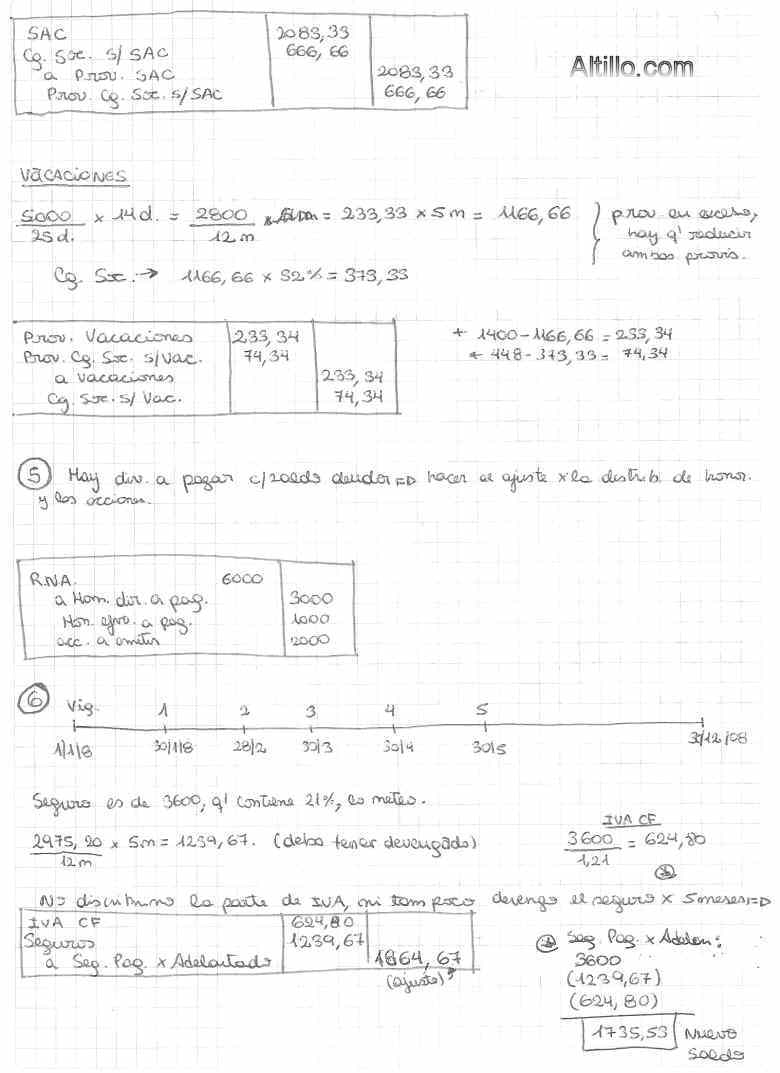 SAC 2083,33
Cg. Soc. s/ SAC 666,66
a Prov. SAC 2083,33
Prov. Cg. Soc. s/SAC 666,66
Altillo.com
VACACIONES
5000/25d. x 14d. = 2800/12m x 5m = 233,33 x 5m = 1166,66
prov en exceso,
hay q' reducir
ambas provis.
Cg. Soc. → 1166,66 x 32% = 373,33
Prov. Vacaciones 233,34
Prov. Cg. Soc. s/Vac. 74,34
a Vacaciones 233,34
Cg. Soc. s/ Vac. 74,34
* 1400-1166,66 = 233,34
* 448-373,33 = 74,34
5 Hay div. a pagar c/saldo deudor => hacer el ajuste x la distrib. de honor.
y las acciones.
R.N.A. 6000
a Hon. dir. a pag. 3000
Hon. a pag. 1000
acc. a emitir 2000
6 Vig. 1 2 3 4 5
1/1/8 30/1/8 28/2 30/3 30/4 30/5 31/12/08
Seguro es de 3600, q' contiene 21%, lo neteo.
2975,20/12m x 5m = 1239,67. (debo tener devengado)
IVA CF
3600/1,21 = 624,80
No discrimino la parte de IVA, ni tampoco devengo el seguro x 5 meses =>
IVA CF 624,80
Seguros 1239,67
a Seg. Pag. x Adelantado 1864,67
(ajuste)
* Seg. Pag. x Adelan:
3600
(1239,67)
(624,80)
1735,53 Nuevo
Saldo